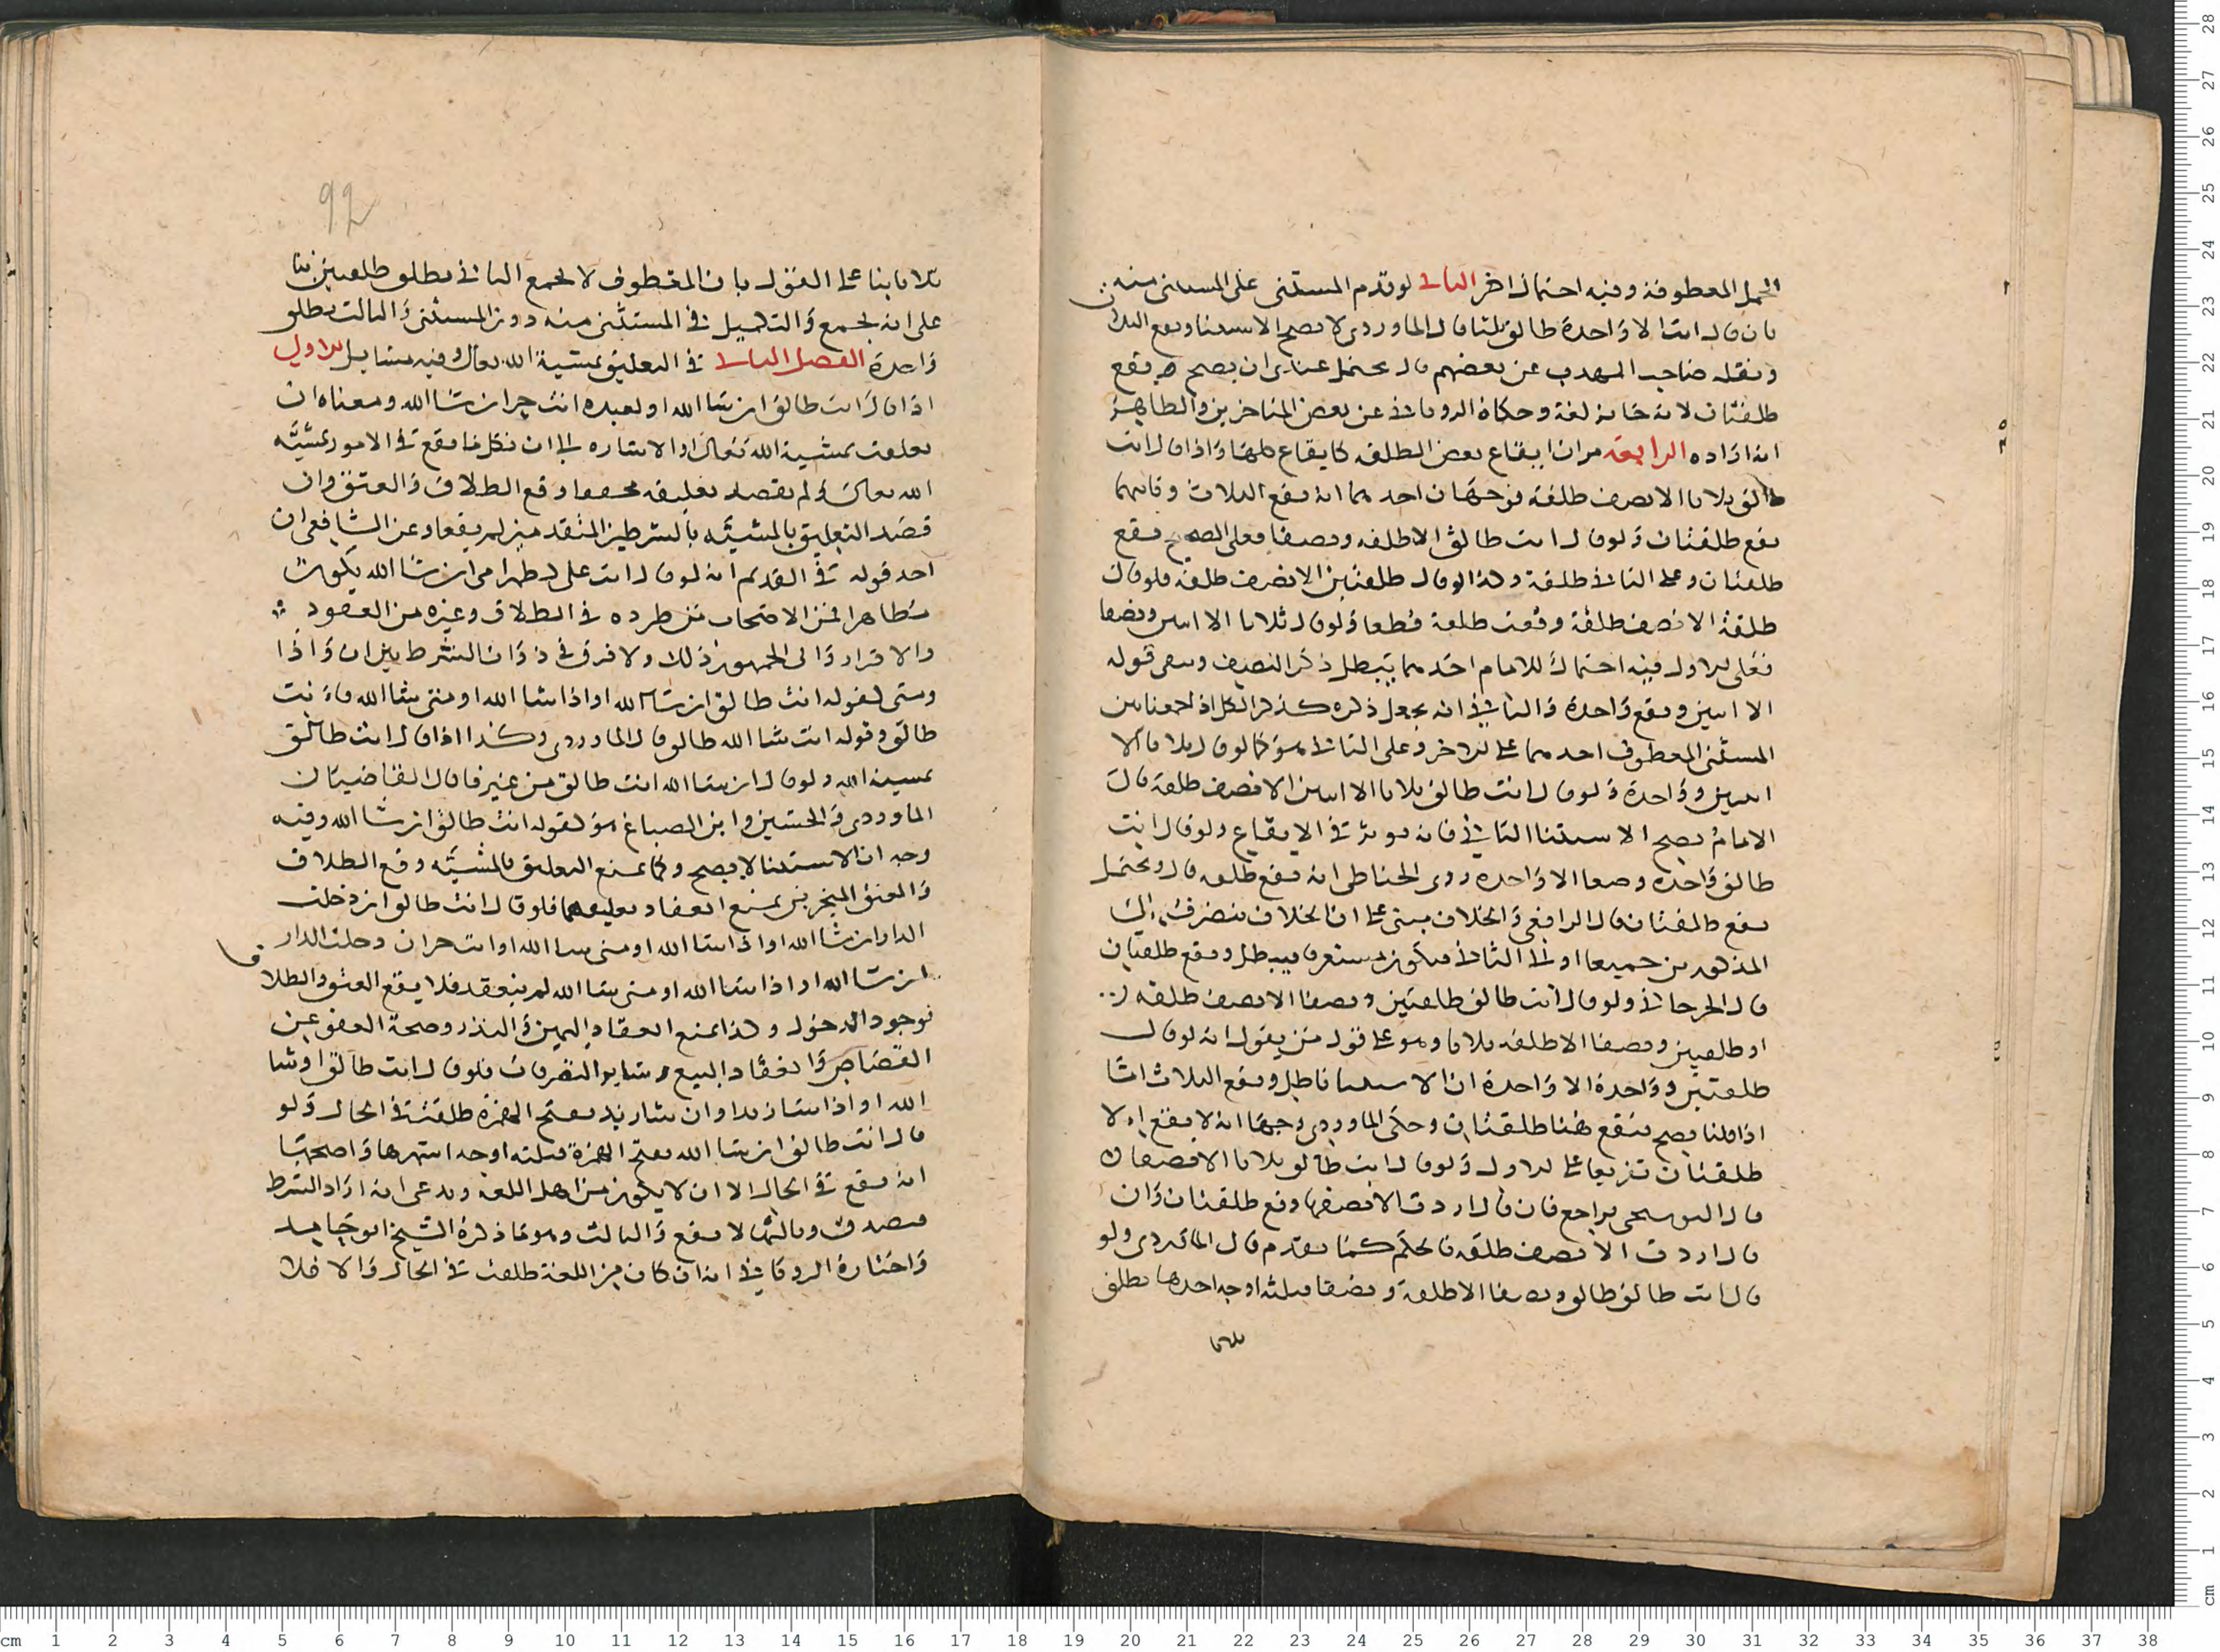 الجمل المعطوفة وفيه احتمال اخر الثالث لو قدم المستثنى على المستثنى منه
بان قال انت الا واحدة طالق ثلثا قال الماوردي لا يصح الاستثنا ويقع الثلاث
ونقله صاحب المهذب عن بعضهم قال ويحتمل عندي ان يصح فيقع
طلقتان لانه جايز لغة وحكاه الروياني عن بعض المتاخرين والظاهر
انه اراده الرابعة مر ان ايقاع بعض الطلقة كايقاع كلها واذا قال انت
طالق ثلاثا الا نصف طلقة فوجهان احدهما انه يقع الثلاث وثانيهما
يقع طلقتان ولو قال انت طالق الا طلقة ونصفا فعلى الصحيح يقع
طلقتان وعلى الثاني طلقة وكذا لو قال طلقتين الا نصف طلقة فلو قال
طلقة الا نصف طلقة وقعت طلقة قطعا ولو قال ثلاثا الا اثنين ونصفا
فعلى الاول فيه احتمال للامام احدهما يبطل ذكر النصف ويبقى قوله
الا اثنين ويقع واحدة والثاني انه يجعل ذكره كذكر الكل اذ لجمعنا بين
المستثنى المعطوف احدهما على الاخر وعلى الثاني هو كما لو قال ثلاثا الا
اثنين وواحدة ولو قال انت طالق ثلاثا الا اثنين الا نصف طلقة قال
الامام يصح الاستثنا الثاني فانه يوثر في الايقاع ولو قال انت
طالق واحدة ونصفا الا واحدة روى الحناطي انه يقع طلقة قال ويحتمل
يقع طلقتان قال الرافعي والخلاف مبني على ان الخلاف ينصرف الى
المذكورين جميعا او الى الثاني فيكون مستغرقا فيبطل ويقع طلقتان
قال الجرجاني ولو قال انت طالق طلقتين ونصفا الا نصف طلقة
او طلقتين ونصفا الا طلقة ثلاثا وهو على قول من يقول انه لو قال
طلقتين وواحدة الا واحدة ان الاستثنا باطل ويقع الثلاث اما
اذا قلنا يصح فيقع هنا طلقتان وحكى الماوردي وجها انه لا يقع الا
طلقتان تفريعا على الاول ولو قال انت طالق ثلاثا الا نصفها
قال البوسنجي يراجع فان قال اردت الا نصفها وقع طلقتان وان
قال اردت الا نصف طلقة فالحكم كما تقدم قال الماوردي ولو
قال انت طالق طالق ونصفا الا طلقة ونصفا فثلثه اوجه احدها تطلق
ثلاثا
92
ثلاثا بنا على القول بان المعطوف لا يجمع الثاني تطلق طلقتين بنا
على انه يجمع والتكميل في المستثنى منه دون المستثنى والثالث تطلق
واحدة الفصل الثالث في التعليق بمشية الله تعالى وفيه مسايل الاولى
اذا قال انت طالق ان شا الله او لعبده انت حر ان شا الله ومعناه ان
تعلقت بمشية الله تعالى او الاشاره الى ان كل ما يقع في الامور بمشية
الله تعالى ولم يقصد تعليقه محققا وقع الطلاق والعتق وان
قصد التعليق بالمشية بالشرطين المتقدمين لم يقعا وعن الشافعي ان
احد قوله في القديم انه لو قال انت علي كظهر امي ان شا الله يكون
مظاهرا فمن الاصحاب من طرده في الطلاق وغيره من العقود
والاقرار وابى الجمهور ذلك ولا فرق في ذوات الشرط بين ان واذا
ومتى كقوله انت طالق ان شا الله او اذا شا الله او متى شا الله فانت
طالق وقوله انت شا الله طالق قال الماوردي وكذا اذا قال انت طالق
بمشية الله ولو قال ان شا الله انت طالق من غير فا قال القاضيان
الماوردي والحسين وابن الصباغ هو كقوله انت طالق ان شا الله وفيه
وجه ان الاستثنا لا يصح وكما يمنع التعليق بالمشية وقع الطلاق
والعتق المنجزين يمنع انعقاد تعليقهما فلو قال انت طالق ان دخلت
الدار ان شا الله او اذا شا الله او متى شا الله او انت حر ان دخلت الدار
ان شا الله او اذا شا الله او متى شا الله لم ينعقد فلا يقع العتق والطلاق
بوجود الدخول وكذا يمنع انعقاد اليمين والنذر وصحة العفو عن
القصاص وانعقاد البيع وساير التصرفات فلو قال انت طالق او شا
الله او اذا شا زيد او ان شا زيد بفتح الهمزة طلقت في الحال ولو
قال انت طالق ان شا الله بفتح الهمزة فثلثه اوجه اشهرها واصحها
انه يقع في الحال الا ان لا يكون من اهل اللغه ويدعي انه اراد الشرط
فيصدق وثانيها لا يقع والثالث وهو ما ذكره الشيخ ابو حامد
واختاره الروياني انه ان كان من اللغة طلقت في الحال والا فلا